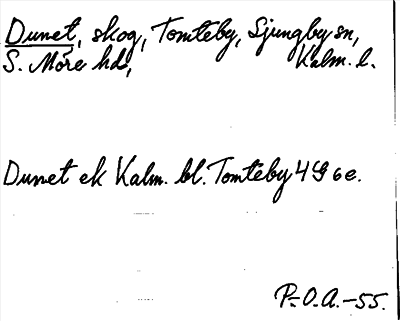 Dunet, skog, Tomteby, Ljungby sn,
S. Möre hd, Kalm. l.
Dunet ek Kalm. bl. Tomteby 4G 6e.
P.-O.A.-55.